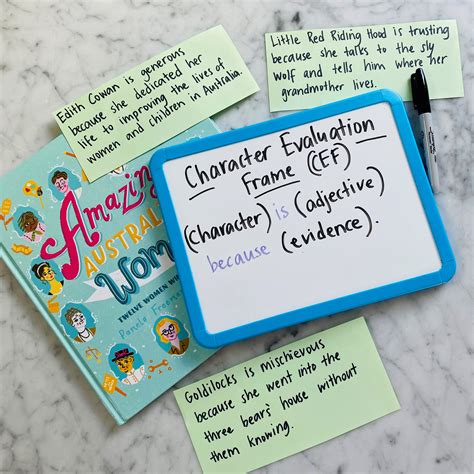 Edith Cowan is generous
because she dedicated her
life to improving the lives of
women and children in Australia.
Little Red Riding Hood is trusting
because she talks to the sly
wolf and tells him where her
grandmother lives.
Character Evaluation
Frame (CEF)
(character) is (adjective)
because (evidence).
Amazing
AUSTRALIAN
Women
TWELVE WOMEN WHO
Pamela Freeman
Goldilocks is mischievous
because she went into the
three bear's house without
them knowing.